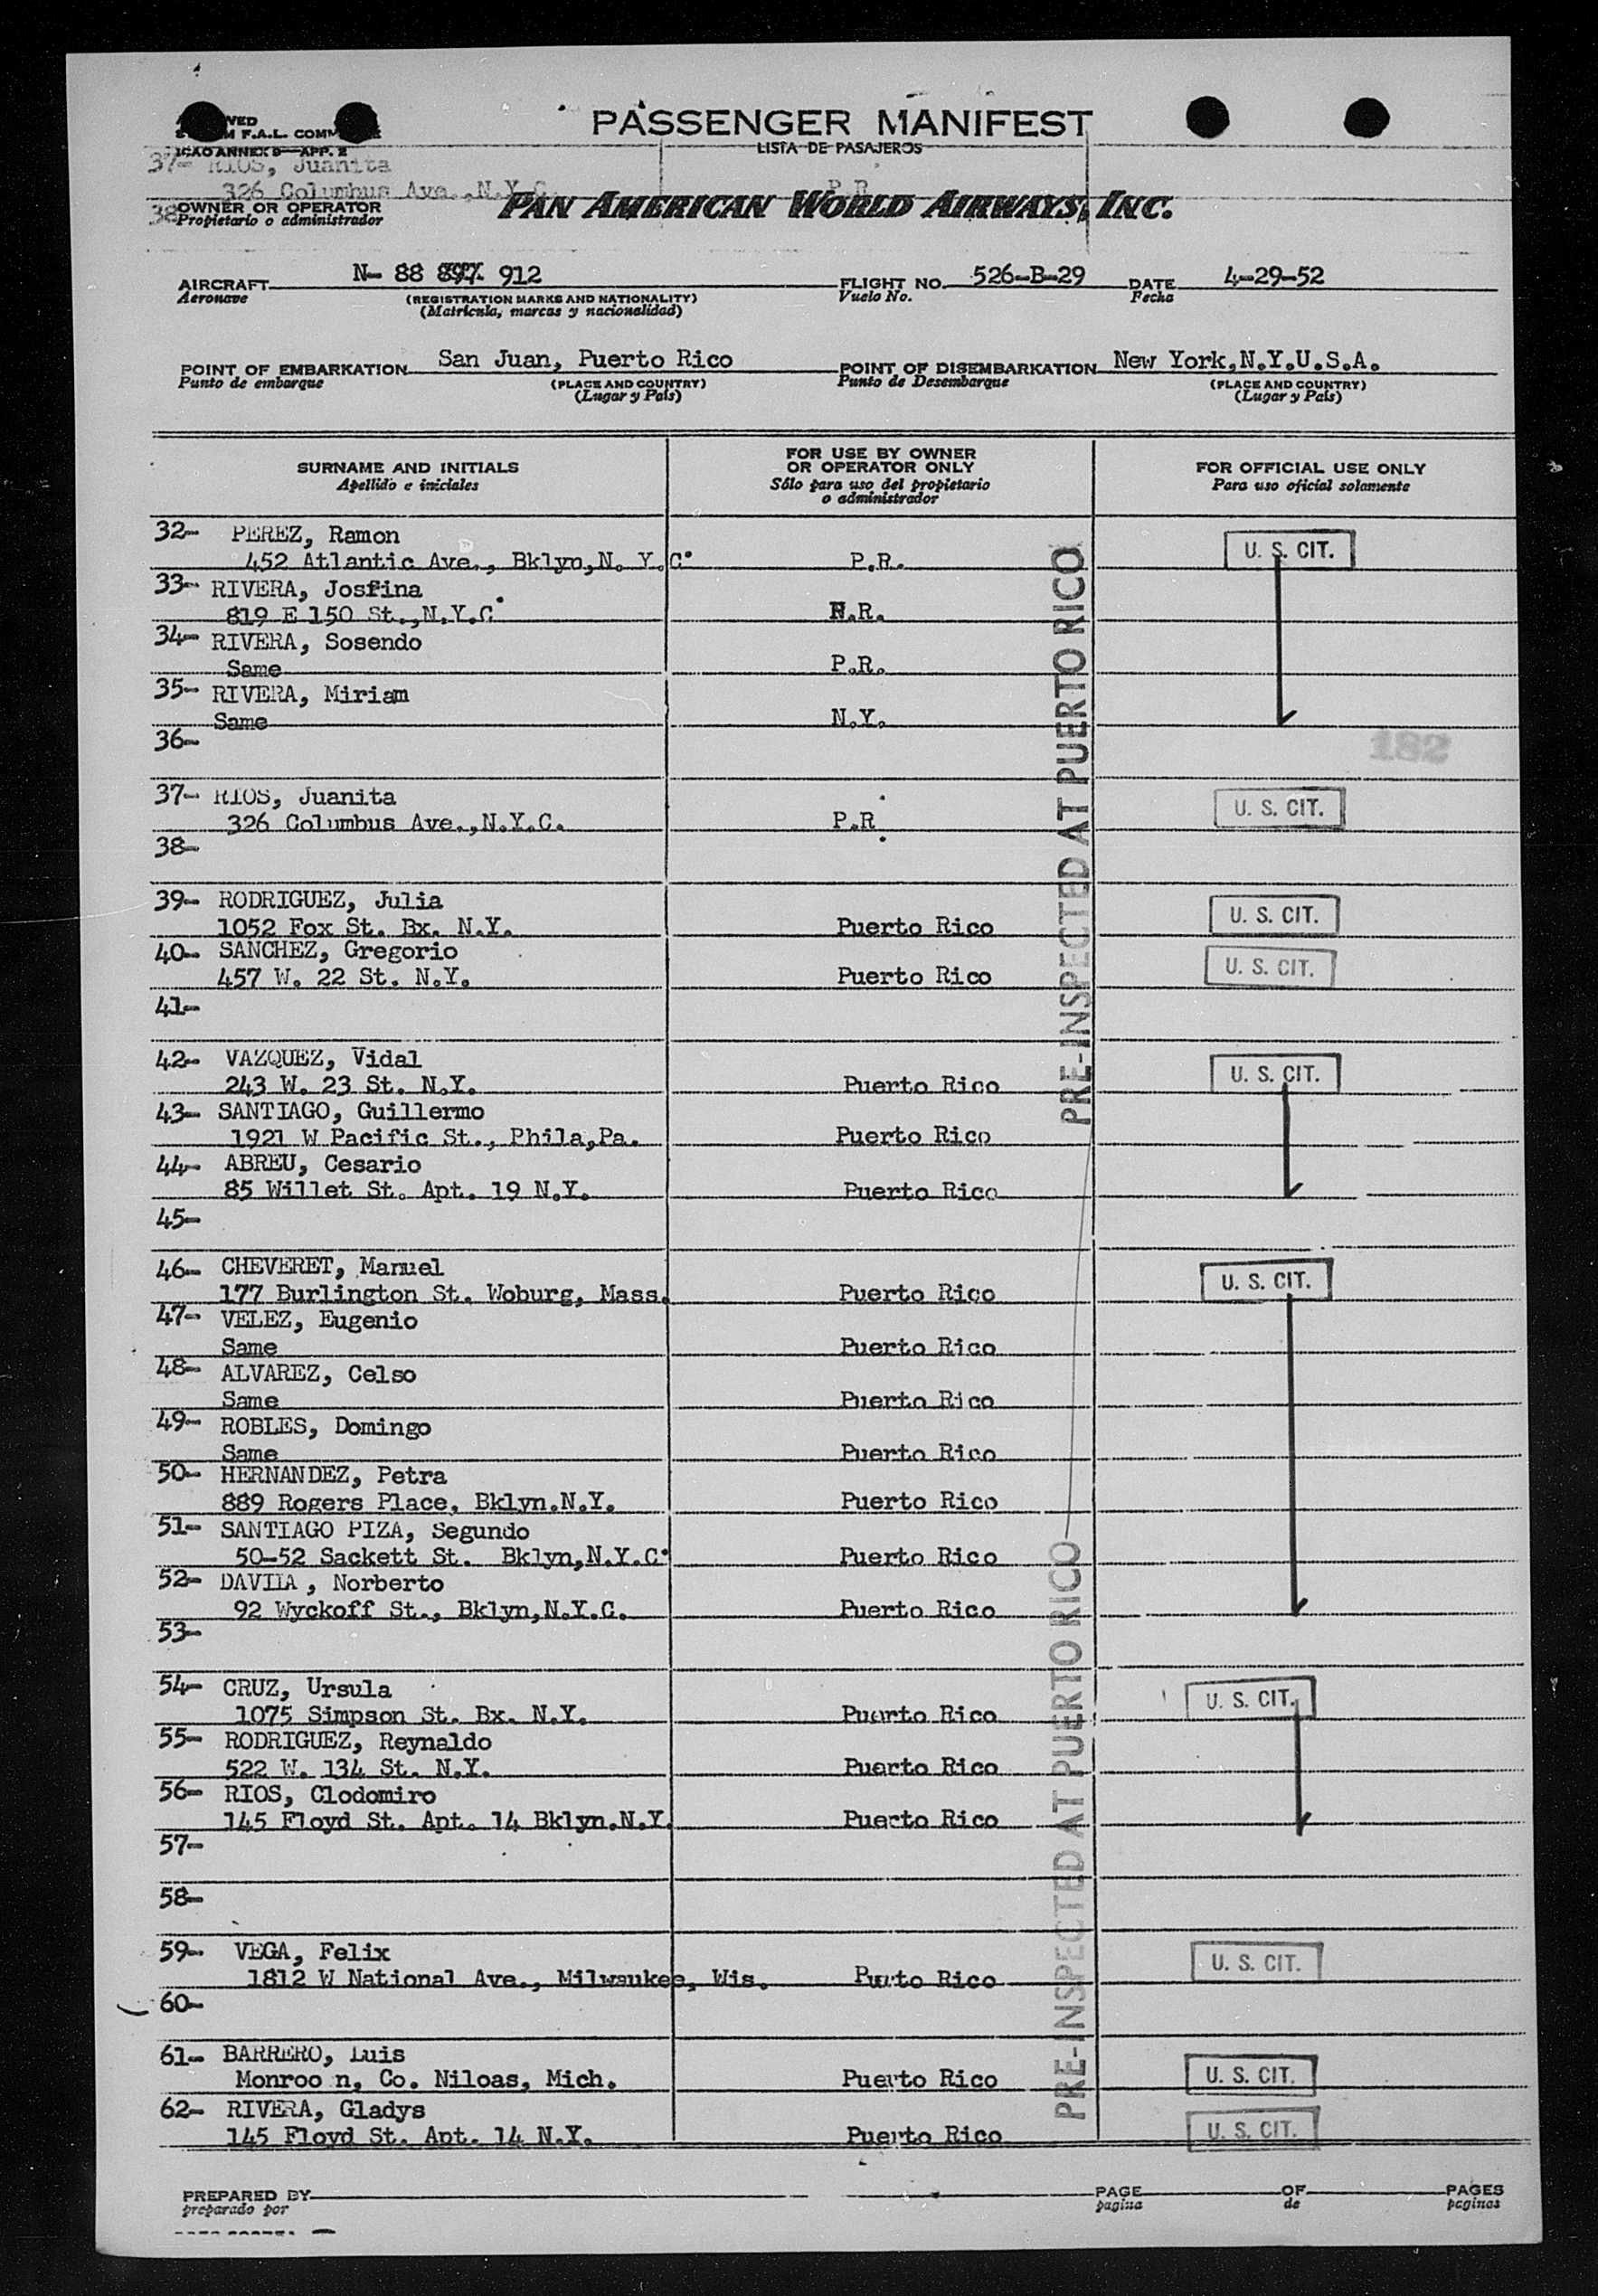 PASSENGER MANIFEST
LISTA DE PASAJEROS
F.A.L.
ICAO ANNEX 9—APP. 2
37- RIOS, Juanita
326 Columbus Ave.,N.Y.C. P.R.
38-
OWNER OR OPERATOR PAN AMERICAN WORLD AIRWAYS, INC.
Propietario o administrador
AIRCRAFT N- 88 897 912 FLIGHT NO. 526-B-29 DATE 4-29-52
Aeronave (REGISTRATION MARKS AND NATIONALITY) Vuelo No. Fecha
(Matrícula, marcas y nacionalidad)
POINT OF EMBARKATION San Juan, Puerto Rico POINT OF DISEMBARKATION New York,N.Y.U.S.A.
Punto de embarque (PLACE AND COUNTRY) Punto de Desembarque (PLACE AND COUNTRY)
(Lugar y País) (Lugar y País)
SURNAME AND INITIALS FOR USE BY OWNER OR OPERATOR ONLY FOR OFFICIAL USE ONLY
Apellido e iniciales Sólo para uso del propietario o administrador Para uso oficial solamente
32- PEREZ, Ramon
452 Atlantic Ave., Bklyn,N. Y.C. P.R. U. S. CIT.
33- RIVERA, Josfina
819 E 150 St.,N.Y.C. .R.
34- RIVERA, Sosendo
Same P.R.
35- RIVERA, Miriam
Same N.Y.
36-
182
37- RIOS, Juanita
326 Columbus Ave.,N.Y.C. P.R. U. S. CIT.
38-
39- RODRIGUEZ, Julia
1052 Fox St. Bx. N.Y. Puerto Rico U. S. CIT.
40- SANCHEZ, Gregorio
457 W. 22 St. N.Y. Puerto Rico U. S. CIT.
41-
PRE-INSPECTED AT PUERTO RICO
42- VAZQUEZ, Vidal
243 W. 23 St. N.Y. Puerto Rico U. S. CIT.
43- SANTIAGO, Guillermo
1921 W Pacific St., Phila,Pa. Puerto Rico
44- ABREU, Cesario
85 Willet St. Apt. 19 N.Y. Puerto Rico
45-
46- CHEVERET, Manuel
177 Burlington St. Woburg, Mass. Puerto Rico U. S. CIT.
47- VELEZ, Eugenio
Same Puerto Rico
48- ALVAREZ, Celso
Same Puerto Rico
49- ROBLES, Domingo
Same Puerto Rico
50- HERNANDEZ, Petra
889 Rogers Place, Bklyn.N.Y. Puerto Rico
51- SANTIAGO PIZA, Segundo
50-52 Sackett St. Bklyn,N.Y.C. Puerto Rico
52- DAVILA , Norberto
92 Wyckoff St., Bklyn,N.Y.C. Puerto Rico
53-
54- CRUZ, Ursula
1075 Simpson St. Bx. N.Y. Puerto Rico U. S. CIT.
55- RODRIGUEZ, Reynaldo
522 W. 134 St. N.Y. Puerto Rico
56- RIOS, Clodomiro
145 Floyd St. Apt. 14 Bklyn.N.Y. Puerto Rico
57-
58-
59- VEGA, Felix
1812 W National Ave., Milwaukee, Wis. Puerto Rico U. S. CIT.
60-
PRE-INSPECTED AT PUERTO RICO
61- BARRERO, Luis
Monroo n, Co. Niloas, Mich. Puerto Rico U. S. CIT.
62- RIVERA, Gladys
145 Floyd St. Apt. 14 N.Y. Puerto Rico U. S. CIT.
PREPARED BY PAGE OF PAGES
preparado por pagina de paginas